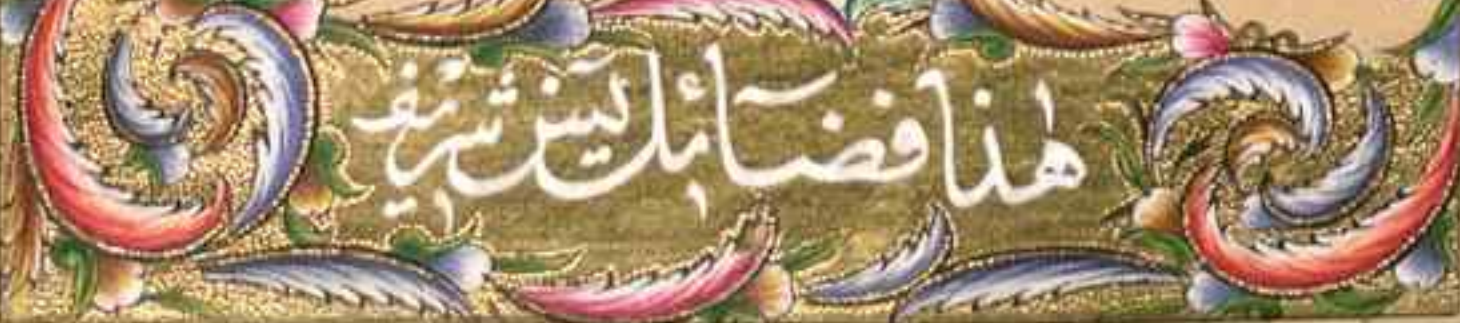 هٰذا فضائل يٰسٓ شريف